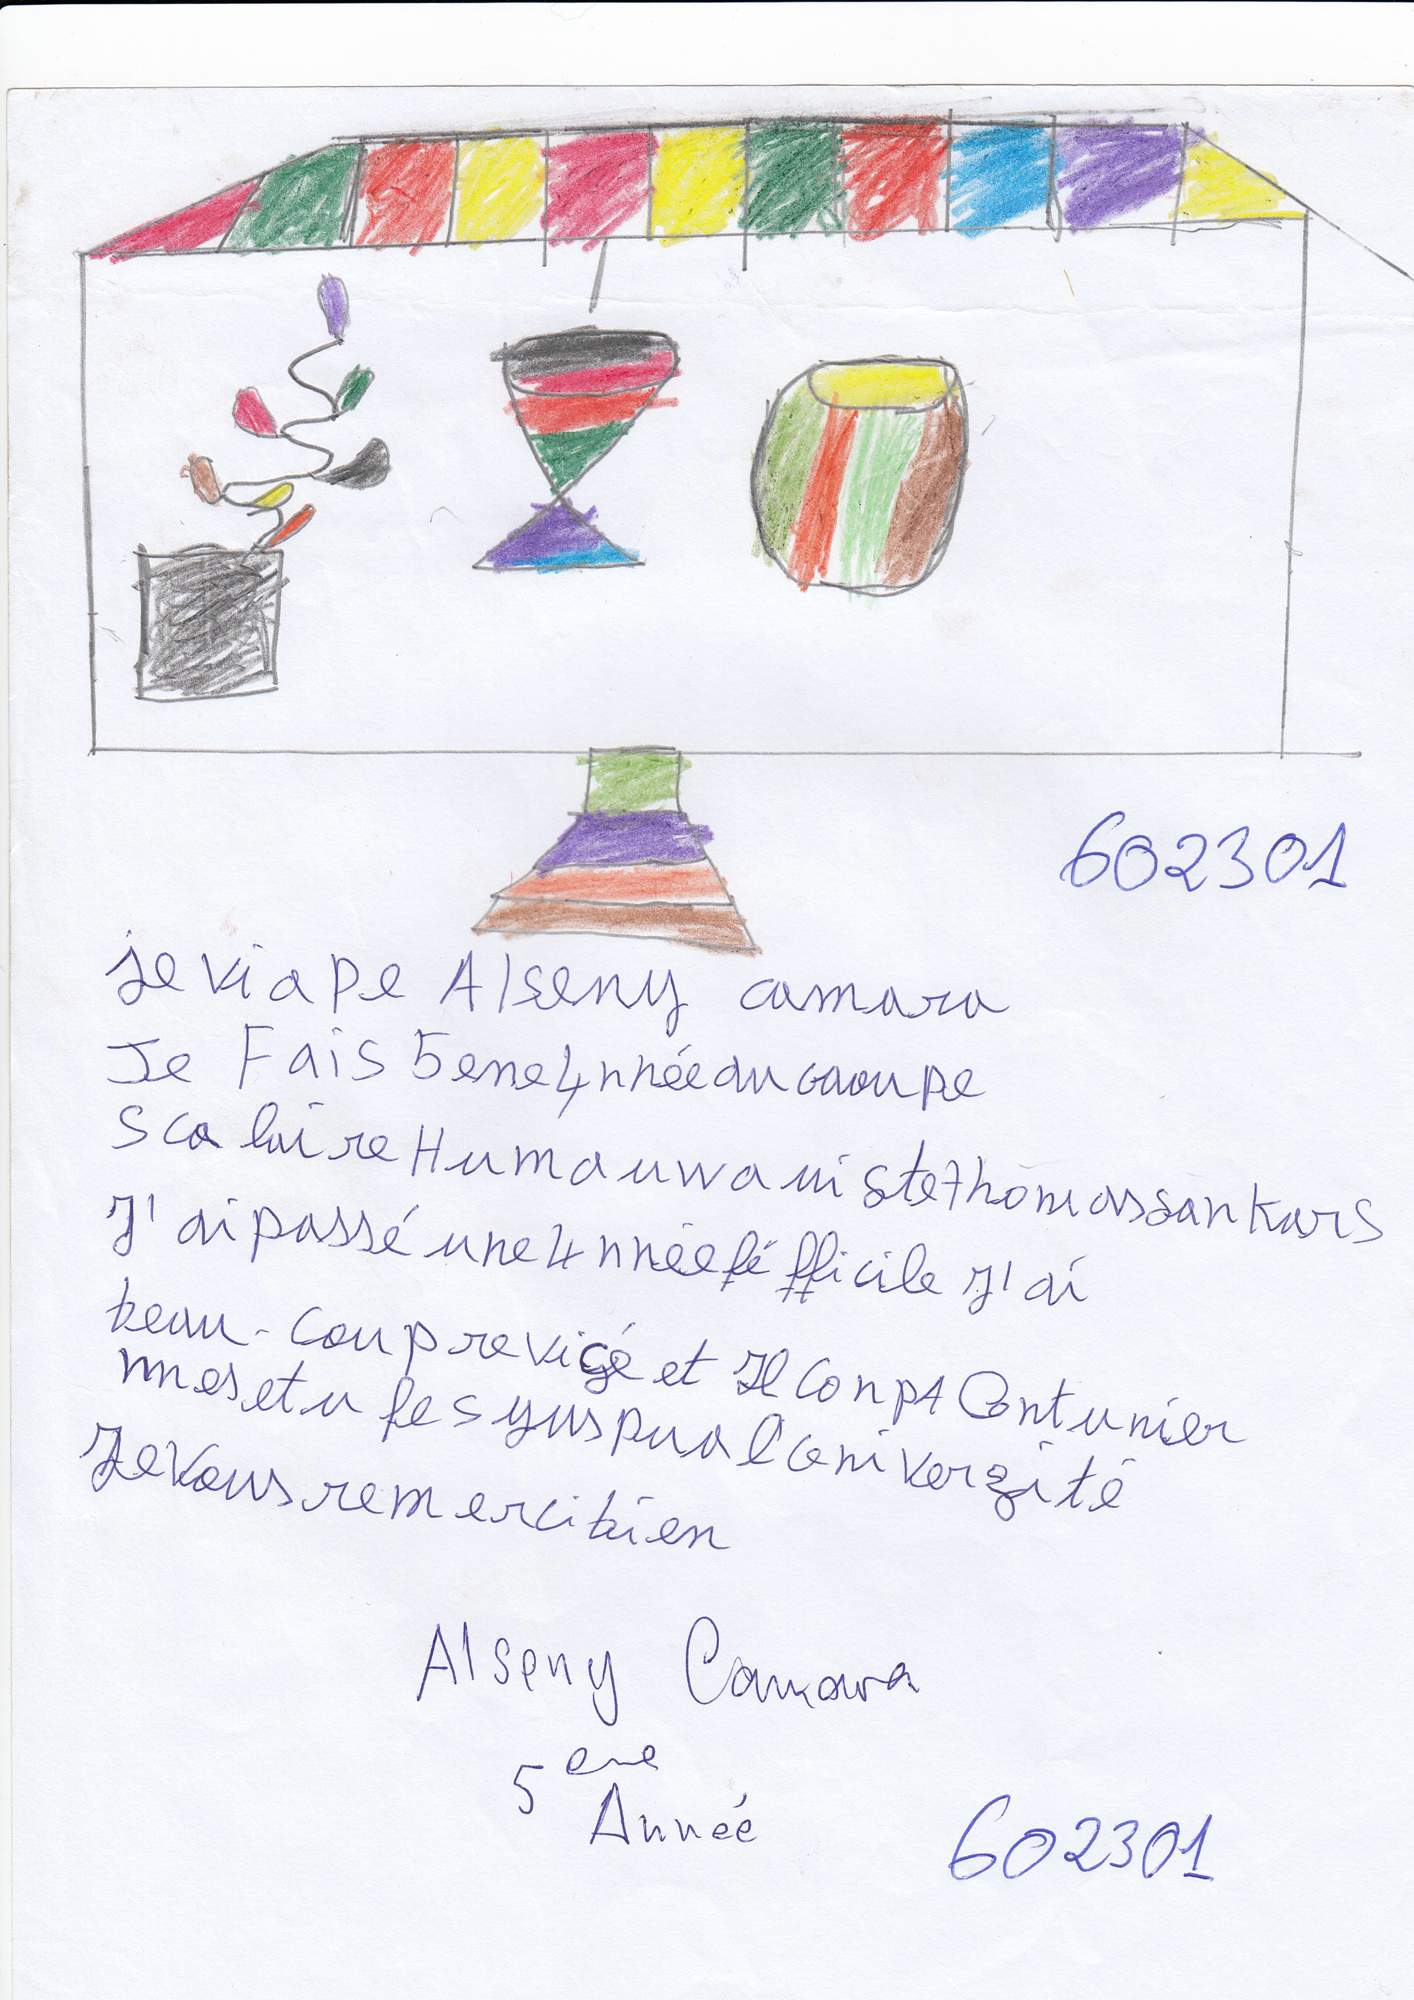 602301
je viape Alseny camara
Je Fais 5eme 4nnée du gaoupe
Scolaire Humauwaniste Thomas sankars
J'ai passé une 4nnée féfficile J'ai
beau-coup revigé et Il conpt Contunier
mes etu
Je vous remerci bien
Alseny Camara
5 eme
Année
602301